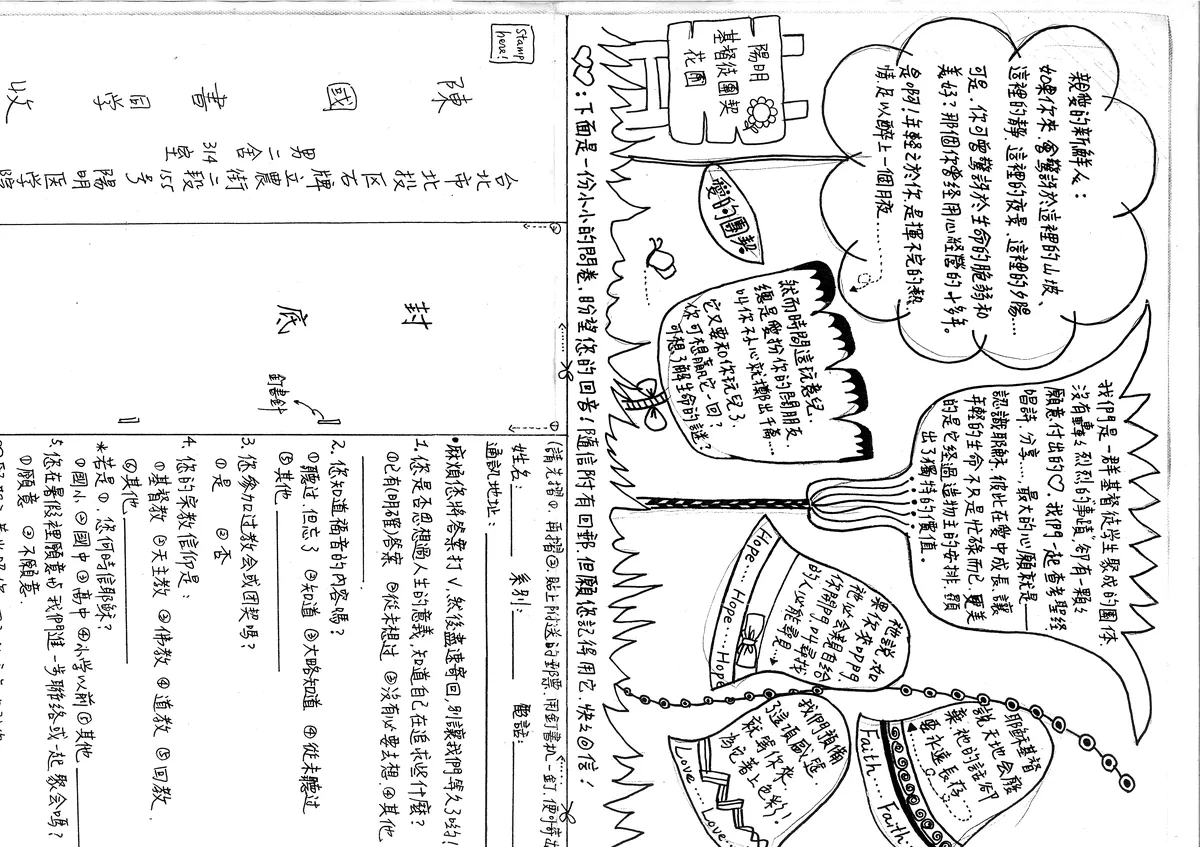 陽明
基督徒團契
花園
親愛的新鮮人：
如果你來,會驚訝於這裡的山坡、
這裡的靜.這裡的夜景.這裡的夕陽……
可是.你可曾驚訝於生命的脆弱和
美好?那個你曾經用心經營的十多年。
是啊!年輕之於你是揮不完的熱
情.足以醉上一個月夜………
愛的團契
然而時間這玩意兒
總是愛扮你的鬧朋友
叫你不小心就擲出千萬…
它又要和你玩兒了.
你可想贏它一回?
可想了解生命的謎?
我們是一群基督徒學生聚成的團体.
沒有轟轟烈烈的"事蹟",卻有一顆顆
願意付出的♡.我們一起查考聖經.
唱詩.分享……,最大的心願就是——
認識耶穌.彼此在愛中成長.讓
年輕的生命.不只是忙碌而已.更美
的是它經過造物主的安排.顯
出了獨特的價值。
果祂說,如
你來叩門
祂必會親自給
你開門.叫尋找
的人必能尋見…
Hope…Hope…Hope
我們預備
了這項感送
就等你來
為它著上色彩!
Love……Love……Love
耶穌基督
說,天地會廢
棄.祂的話卻
要永遠長存
Faith……Faith……Faith
♡♡:下面是一份小小的問卷.盼望您的回音!隨信附有回郵.但願您記得用它.快々回信!
Stamp
here!
台北市北投区石牌立農街二段155号陽明医学院
男二舍314室
陳國書同学收
封
底
釘書針
(請先摺①.再摺②.貼上附送的郵票.用釘書机一釘.便可寄出
姓名: 系別: 電話:
通訊地址:
•麻煩您將答案打∨.然後盡速寄回,別讓我們等久了喲!
1.您是否思想過人生的意義,知道自己在追求些什麼?
①已有明確答案 ②從未想過 ③沒有必要去想 ④其他
2.您知道福音的內容嗎?
①聽过.但忘了 ②知道 ③大略知道 ④從未聽过
⑤其他
3.您参加过教会或団契嗎?
①是 ②否
4.您的宗教信仰是：
①基督教 ②天主教 ③佛教 ④道教 ⑤回教
⑥其他
*若是①.您何時信耶穌?
①國小 ②國中 ③高中 ④小学以前 ⑤其他
5.您在暑假裡願意与我們進一步聯絡或一起聚会嗎?
①願意 ②不願意.